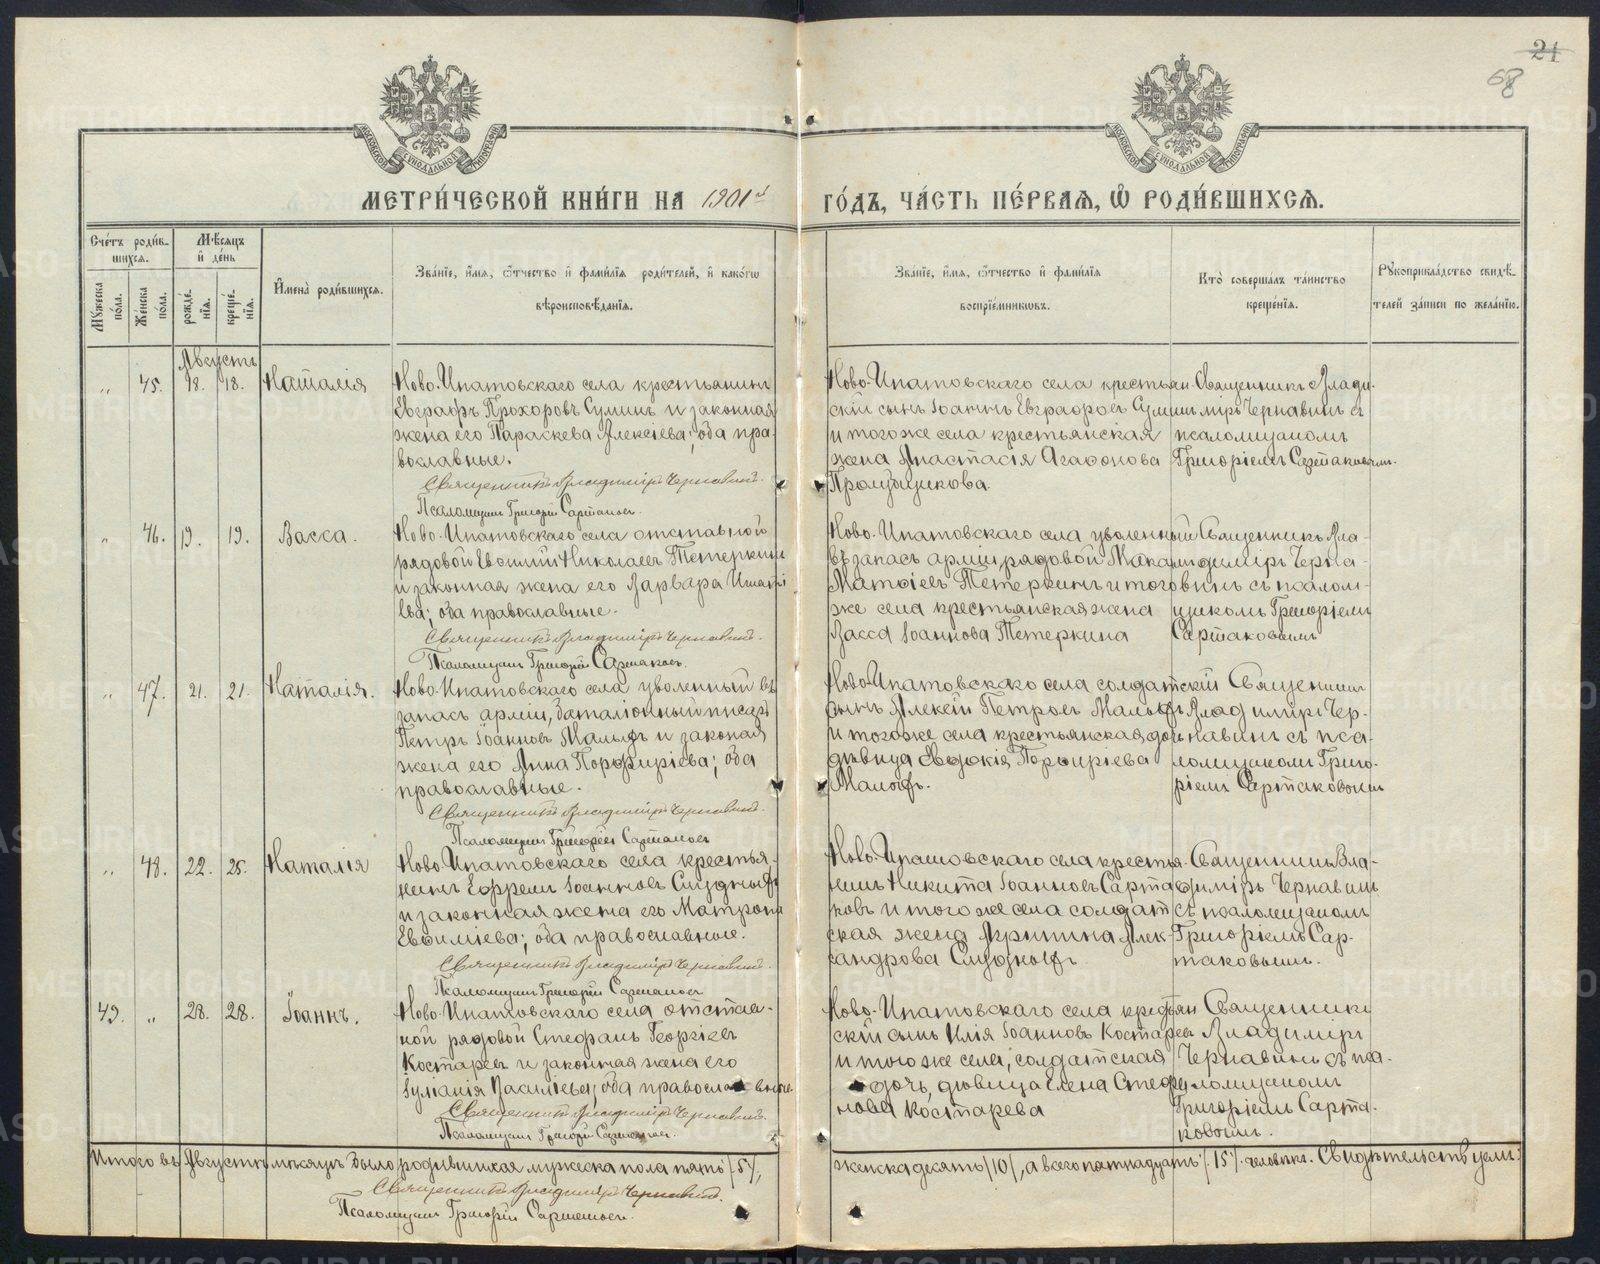 21
68
МЕТРИ́ЧЕСКОЙ КНИ́ГИ НА 1901й ГО́ДЪ, ЧА́СТЬ ПЕ́РВАѦ, Ѡ РОДИ́ВШИХСѦ.
Сче́тъ роди́вшихсѧ.
Мѣ́сѧцъ и де́нь
Мꙋ́жеска по́ла.
Же́нска по́ла.
рожде́нїѧ.
креще́нїѧ.
И҆мена̀ роди́вшихсѧ.
Зва́нїе, и҆́мѧ, ѻ҆́тчество и҆ фами́лїѧ роди́телей, и҆ како́гѡ вѣроисповѣ́данїѧ.
Зва́нїе, и҆́мѧ, ѻ҆́тчество и҆ фами́лїѧ воспрїе́мникѡвъ.
Кто̀ соверша́лъ та́инство креще́нїѧ.
Рꙋкоприкла́дство свидѣ́телей за́писи по жела́нїю.
Августъ
" 45. 18. 18. Наталія
Ново-Ипатовскаго села крестьянинъ
Евграфъ Прохоровъ Суминъ и законная
жена его Параскева Алексіева; оба пра-
вославные.
Священникъ Владиміръ Чернавинъ.
Псаломщикъ Григорій Сартаковъ.
Ново-Ипатовскаго села крестьян-
скій сынъ Іоаннъ Евграфовъ Суминъ
и того же села крестьянская
жена Анастасія Агафонова
Священникъ Влади-
міръ Чернавинъ съ
псаломщикомъ
Григоріемъ Сартаковымъ.
" 46. 19. 19. Васса.
Ново-Ипатовскаго села отставной
рядовой Евѳимій Николаевъ Тетеркинъ
и законная жена его Варвара Игнатi
ева; оба православные.
Священникъ Владиміръ Чернавинъ.
Псаломщикъ Григорій Сартаковъ.
Ново-Ипатовскаго села уволенный
въ запасъ арміи рядовой
Матѳіевъ Тетеркинъ и того
же села крестьянская жена
Васса Іоаннова Тетеркина
Священникъ Вла-
диміръ Черна-
винъ съ псалом-
щикомъ Григоріемъ
Сартаковымъ
" 47. 21. 21. Наталія.
Ново-Ипатовскаго села уволенный въ
запасъ арміи, баталіонный писарь
Петръ Іоанновъ Малыхъ и законая
жена его Анна Порфиріева; оба
православные.
Священникъ Владиміръ Чернавинъ.
Псаломщикъ Григорій Сартаковъ
Ново-Ипатовскаго села солдатскій
сынъ Алексій Петровъ Малыхъ
и того же села крестьянская дочь
дѣвица Евдокія Порфиріева
Малыхъ.
Священникъ
Владиміръ Чер-
навинъ съ пса-
ломщикомъ Григо-
ріемъ Сартаковымъ
" 48. 22. 25. Наталія
Ново-Ипатовскаго села крестья-
нинъ Ефремъ Іоанновъ Слудныхъ
и законная жена его Матрона
Евѳиміева; оба православные.
Священникъ Владиміръ Чернавинъ.
Псаломщикъ Григорій Сартаковъ
Ново-Ипатовскаго села крестья-
нинъ Никита Іоанновъ Сарта-
ковъ и того же села солдат-
ская жена Агриппина Алек-
сандрова Слудныхъ
Священникъ Вла-
диміръ Чернавинъ
съ псаломщикомъ
Григоріемъ Сар-
таковымъ.
49. " 28. 28. Іоаннъ.
Ново-Ипатовскаго села отстав-
ной рядовой Стефанъ Георгіевъ
Костаревъ и законная жена его
Іуліанія Васильева; оба православные
Священникъ Владиміръ Чернавинъ.
Псаломщикъ Григорій Сартаковъ.
Ново-Ипатовскаго села крестьян
скій сынъ Илія Іоанновъ Костаревъ
и того же села, солдатская
дочь, дѣвица Елена Стефа
нова Костарева
Священникъ
Владиміръ
Чернавинъ съ пса-
ломщикомъ
Григоріемъ Сарта-
ковымъ.
Итого въ Августѣ мѣсяцѣ было родившихся мужеска пола пять /5/, женска десять /10/, а всего пятнадцать /15/ человѣкъ. Свидѣтельствуемъ:
Священникъ Владиміръ Чернавинъ.
Псаломщикъ Григорій Сартаковъ.